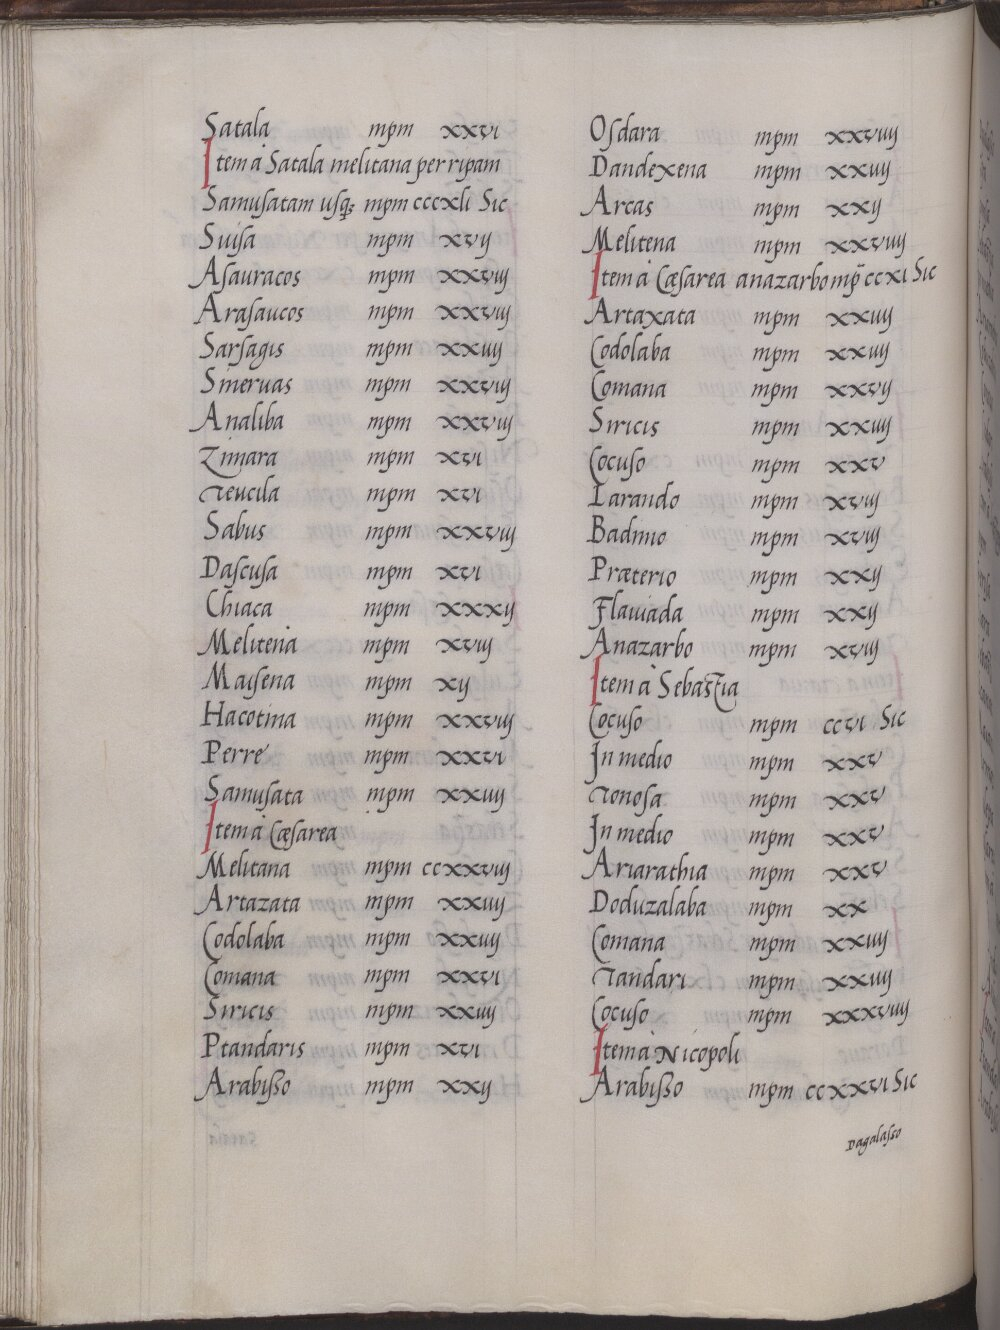 Satala mpm xxvi
Item à Satala melitana per ripam
Samusatam usq; mpm cccxli Sic
Suisa mpm xvij
Asauracos mpm xxviij
Arasaucos mpm xxviij
Sarsagis mpm xxiiij
Smeruas mpm xxviij
Analiba mpm xxviij
Zimara mpm xvi
Teucila mpm xvi
Sabus mpm xxviij
Dascusa mpm xvi
Chiaca mpm xxxij
Melitena mpm xviij
Maisena mpm xij
Hacotina mpm xxviij
Perre mpm xxvi
Samusata mpm xxiiij
Item à Cæsarea
Melitana mpm ccxxviij
Artazata mpm xxiiij
Codolaba mpm xxiiij
Comana mpm xxvi
Siricis mpm xxiiij
Ptandaris mpm xvi
Arabisso mpm xxij
Osdara mpm xxviij
Dandexena mpm xxiiij
Arcas mpm xxij
Melitena mpm xxviij
Item à Cæsarea anazarbo mp̄ ccxi Sic
Artaxata mpm xxiiij
Codolaba mpm xxiiij
Comana mpm xxvij
Siricis mpm xxiiij
Cocuso mpm xxv
Larando mpm xviij
Badimo mpm xviij
Præterio mpm xxij
Flauiada mpm xxij
Anazarbo mpm xviij
Item à Sebastia
Cocuso mpm ccvi Sic
In medio mpm xxv
Tonosa mpm xxv
In medio mpm xxv
Ariarathia mpm xxv
Doduzalaba mpm xx
Comana mpm xxiiij
Tandari mpm xxiiij
Cocuso mpm xxxviij
Item à Nicopoli
Arabisso mpm ccxxvi Sic
Dagalasso